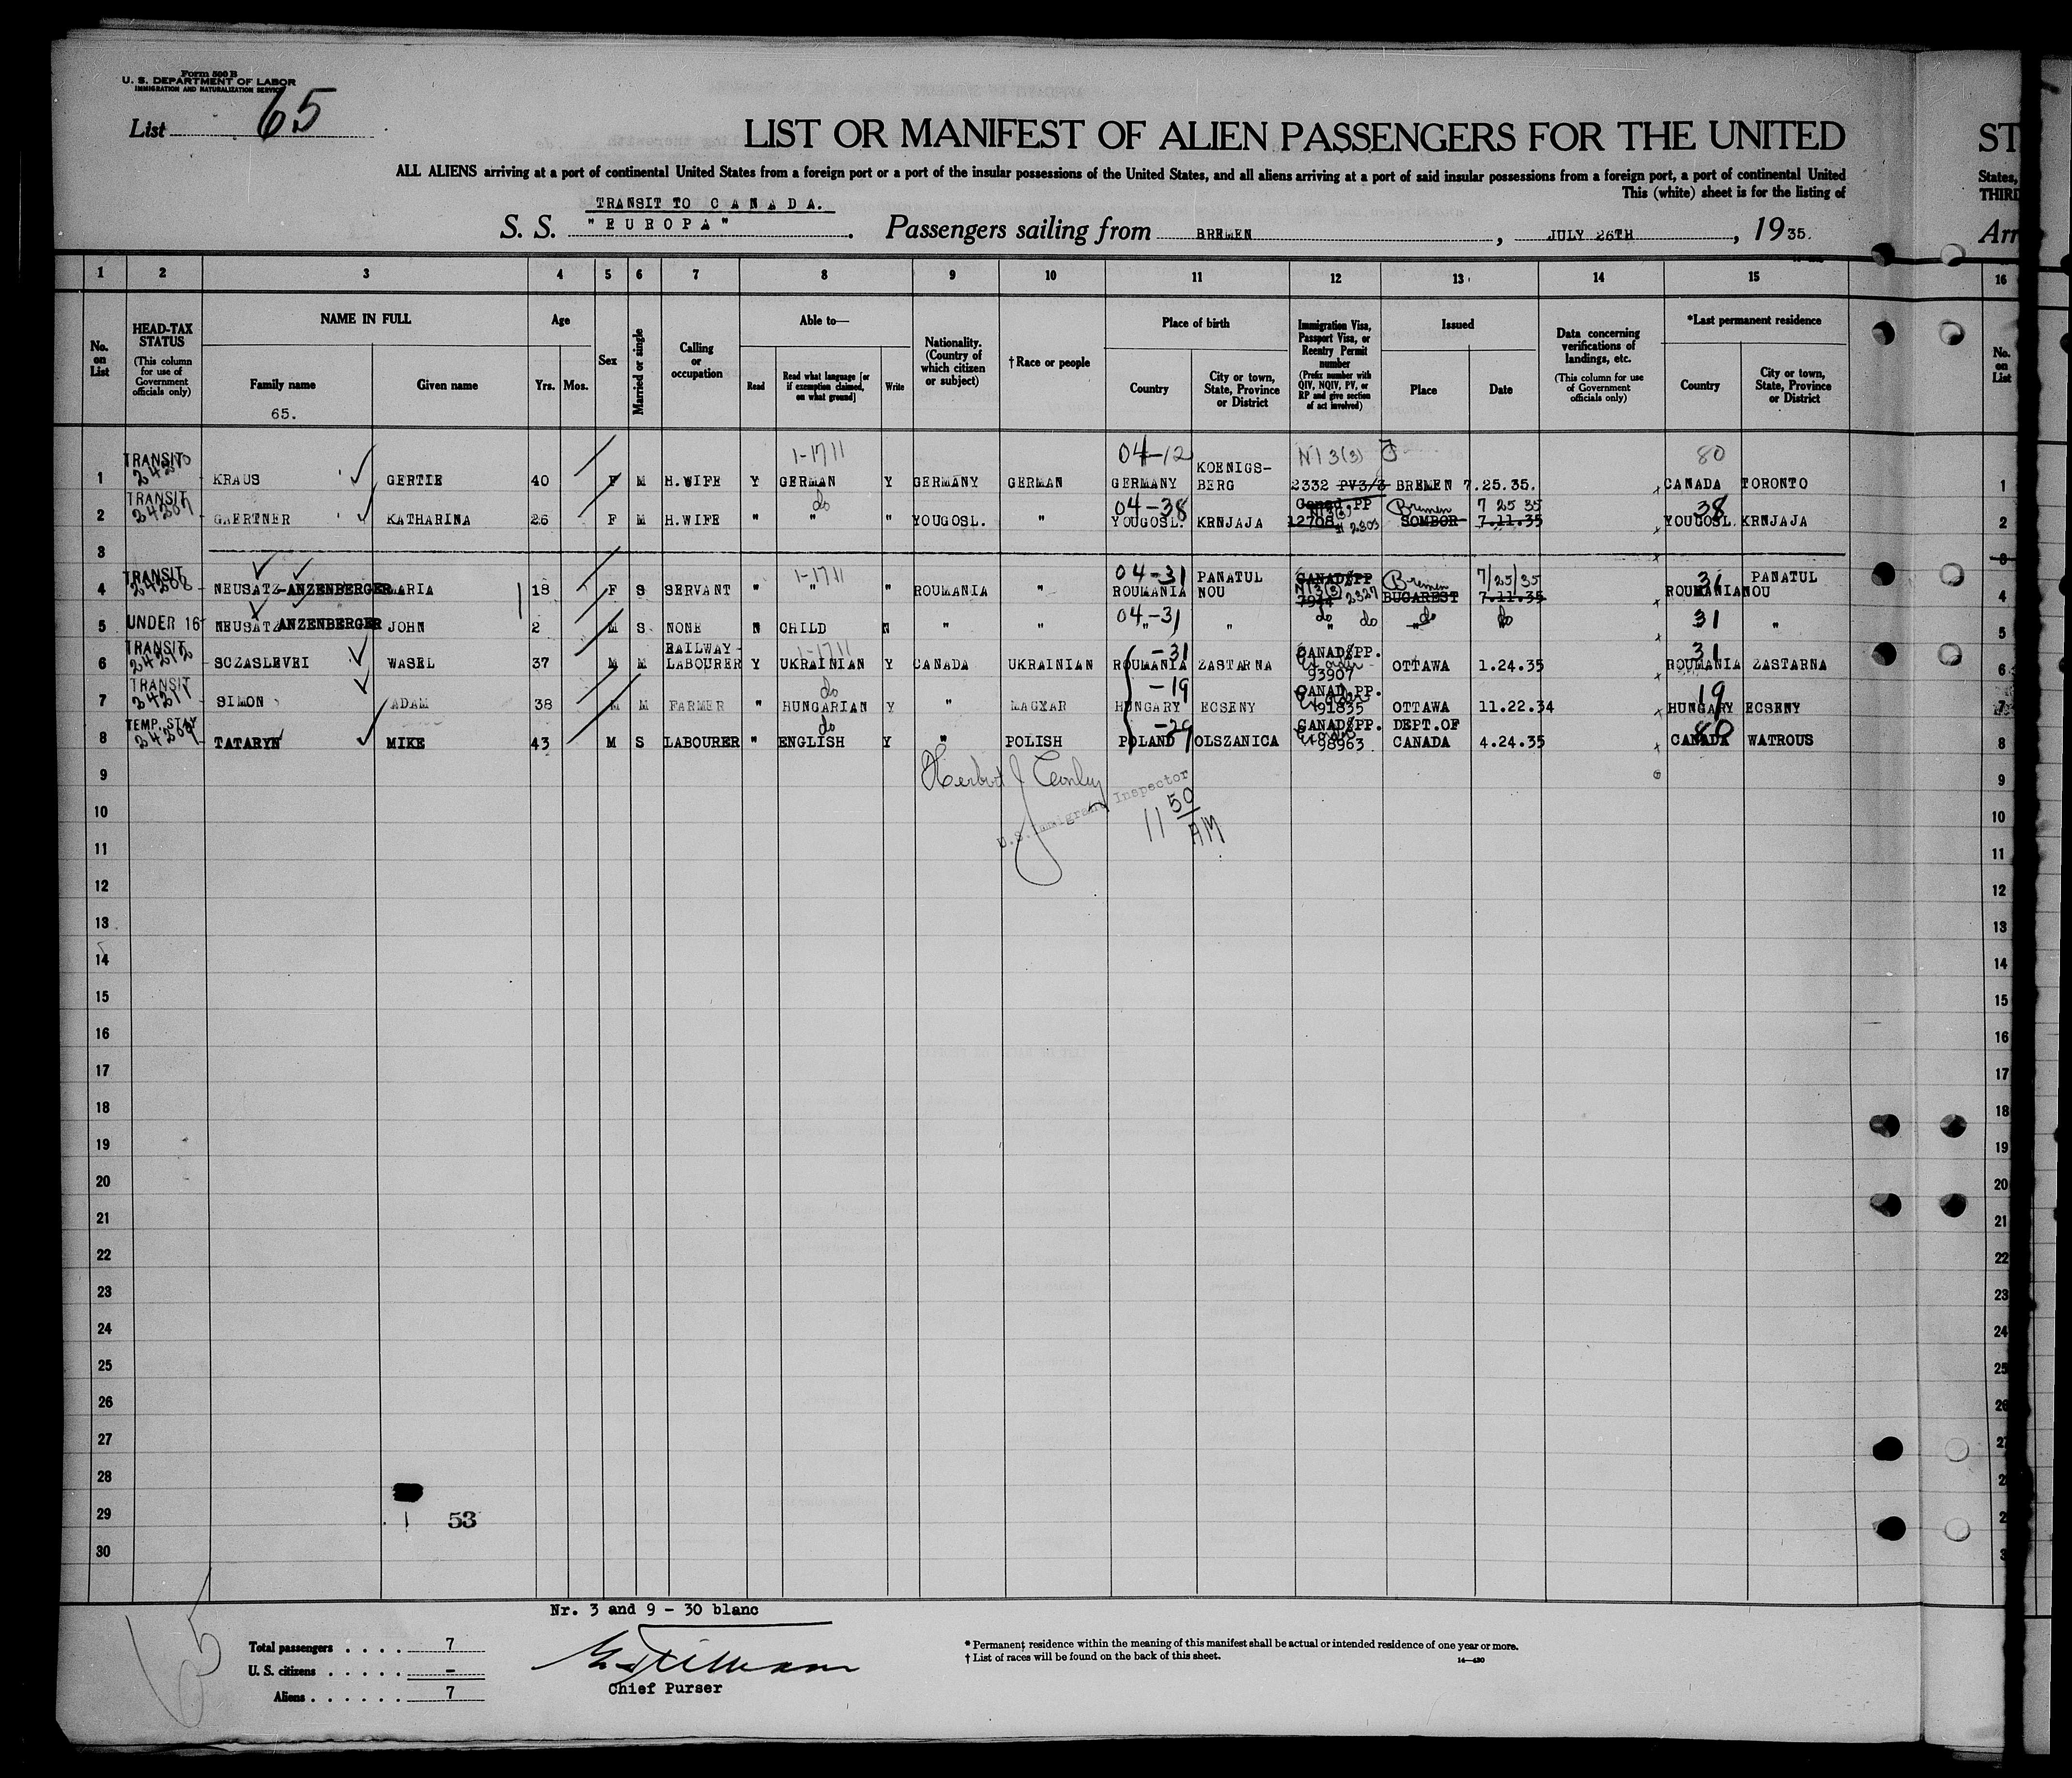 Form 500 B
U. S. DEPARTMENT OF LABOR
IMMIGRATION AND NATURALIZATION SERVICE
List 65
LIST OR MANIFEST OF ALIEN PASSENGERS FOR THE UNITED ST
ALL ALIENS arriving at a port of continental United States from a foreign port or a port of the insular possessions of the United States, and all aliens arriving at a port of said insular possessions from a foreign port, a port of continental United States,
This (white) sheet is for the listing of THIRD
TRANSIT TO CANADA.
S. S. "EUROPA". Passengers sailing from BREMEN, JULY 26TH, 1935. Arr
1 2 3 4 5 6 7 8 9 10 11 12 13 14 15 16
No. on List
HEAD-TAX STATUS (This column for use of Government officials only)
NAME IN FULL
Family name
65.
Given name
Age
Yrs. Mos.
Sex
Married or single
Calling or occupation
Able to—
Read
Read what language [or if exemption claimed, on what ground]
Write
Nationality. (Country of which citizen or subject)
† Race or people
Place of birth
Country
City or town, State, Province or District
Immigration Visa, Passport Visa, or Reentry Permit number
(Prefix number with QIV, NQIV, PV, or RP and give section of act involved)
Issued
Place
Date
Data concerning verifications of landings, etc.
(This column for use of Government officials only)
*Last permanent residence
Country
City or town, State, Province or District
No. on List
TRANSIT 1-1711 04-12 N13(3) 80
1 KRAUS GERTIE 40 F M H.WIFE Y GERMAN Y GERMANY GERMAN GERMANY KOENIGS-BERG 2332 PV3/3 BREMEN 7.25.35. CANADA TORONTO 1
TRANSIT 24207 do 04-38 Canad.PP N13(3) Bremen 7 25 35 38
2 GAERTNER KATHARINA 26 F M H.WIFE " " " YOUGOSL. " YOUGOSL. KRNJAJA 12708 2303 SOMBOR 7.11.35 YOUGOSL. KRNJAJA 2
3 3
TRANSIT 24208 1-1711 04-31 PANATUL CANAD.PP N13(3) Bremen 7/25/35 31 PANATUL
4 NEUSATZ-ANZENBERGER MARIA 18 F S SERVANT " " " ROUMANIA " ROUMANIA NOU 2327 BUCAREST 7.11.35 ROUMANIA NOU 4
UNDER 16 04-31 do do do do 31
5 NEUSATZ ANZENBERGER JOHN 2 M S NONE N CHILD N " " " " " " " 5
TRANSIT 24212 RAILWAY- 1-1711 -31 CANAD.PP. 31
6 SCZASLEVEI WASEL 37 M M LABOURER Y UKRAINIAN Y CANADA UKRAINIAN ROUMANIA ZASTARNA 93907 OTTAWA 1.24.35 ROUMANIA ZASTARNA 6
TRANSIT 24211 do -19 CANAD.PP. 19
7 SIMON ADAM 38 M M FARMER " HUNGARIAN Y " MAGYAR HUNGARY ECSENY 91835 OTTAWA 11.22.34 HUNGARY ECSENY 7
TEMP. STAY 24209 do -29 CANAD.PP. DEPT.OF 80
8 TATARYN MIKE 43 M S LABOURER " ENGLISH Y " POLISH POLAND OLSZANICA 98963 CANADA 4.24.35 CANADA WATROUS 8
9 Herbert J 9
U.S. Immigrant Inspector
11 50 AM
10 10
11 11
12 12
13 13
14 14
15 15
16 16
17 17
18 18
19 19
20 20
21 21
22 22
23 23
24 24
25 25
26 26
27 27
28 28
29 53
30
65
Nr. 3 and 9 - 30 blanc
Total passengers . . . . 7
U. S. citizens . . . . . –
Aliens . . . . . . 7
Chief Purser
* Permanent residence within the meaning of this manifest shall be actual or intended residence of one year or more.
† List of races will be found on the back of this sheet.
14—430